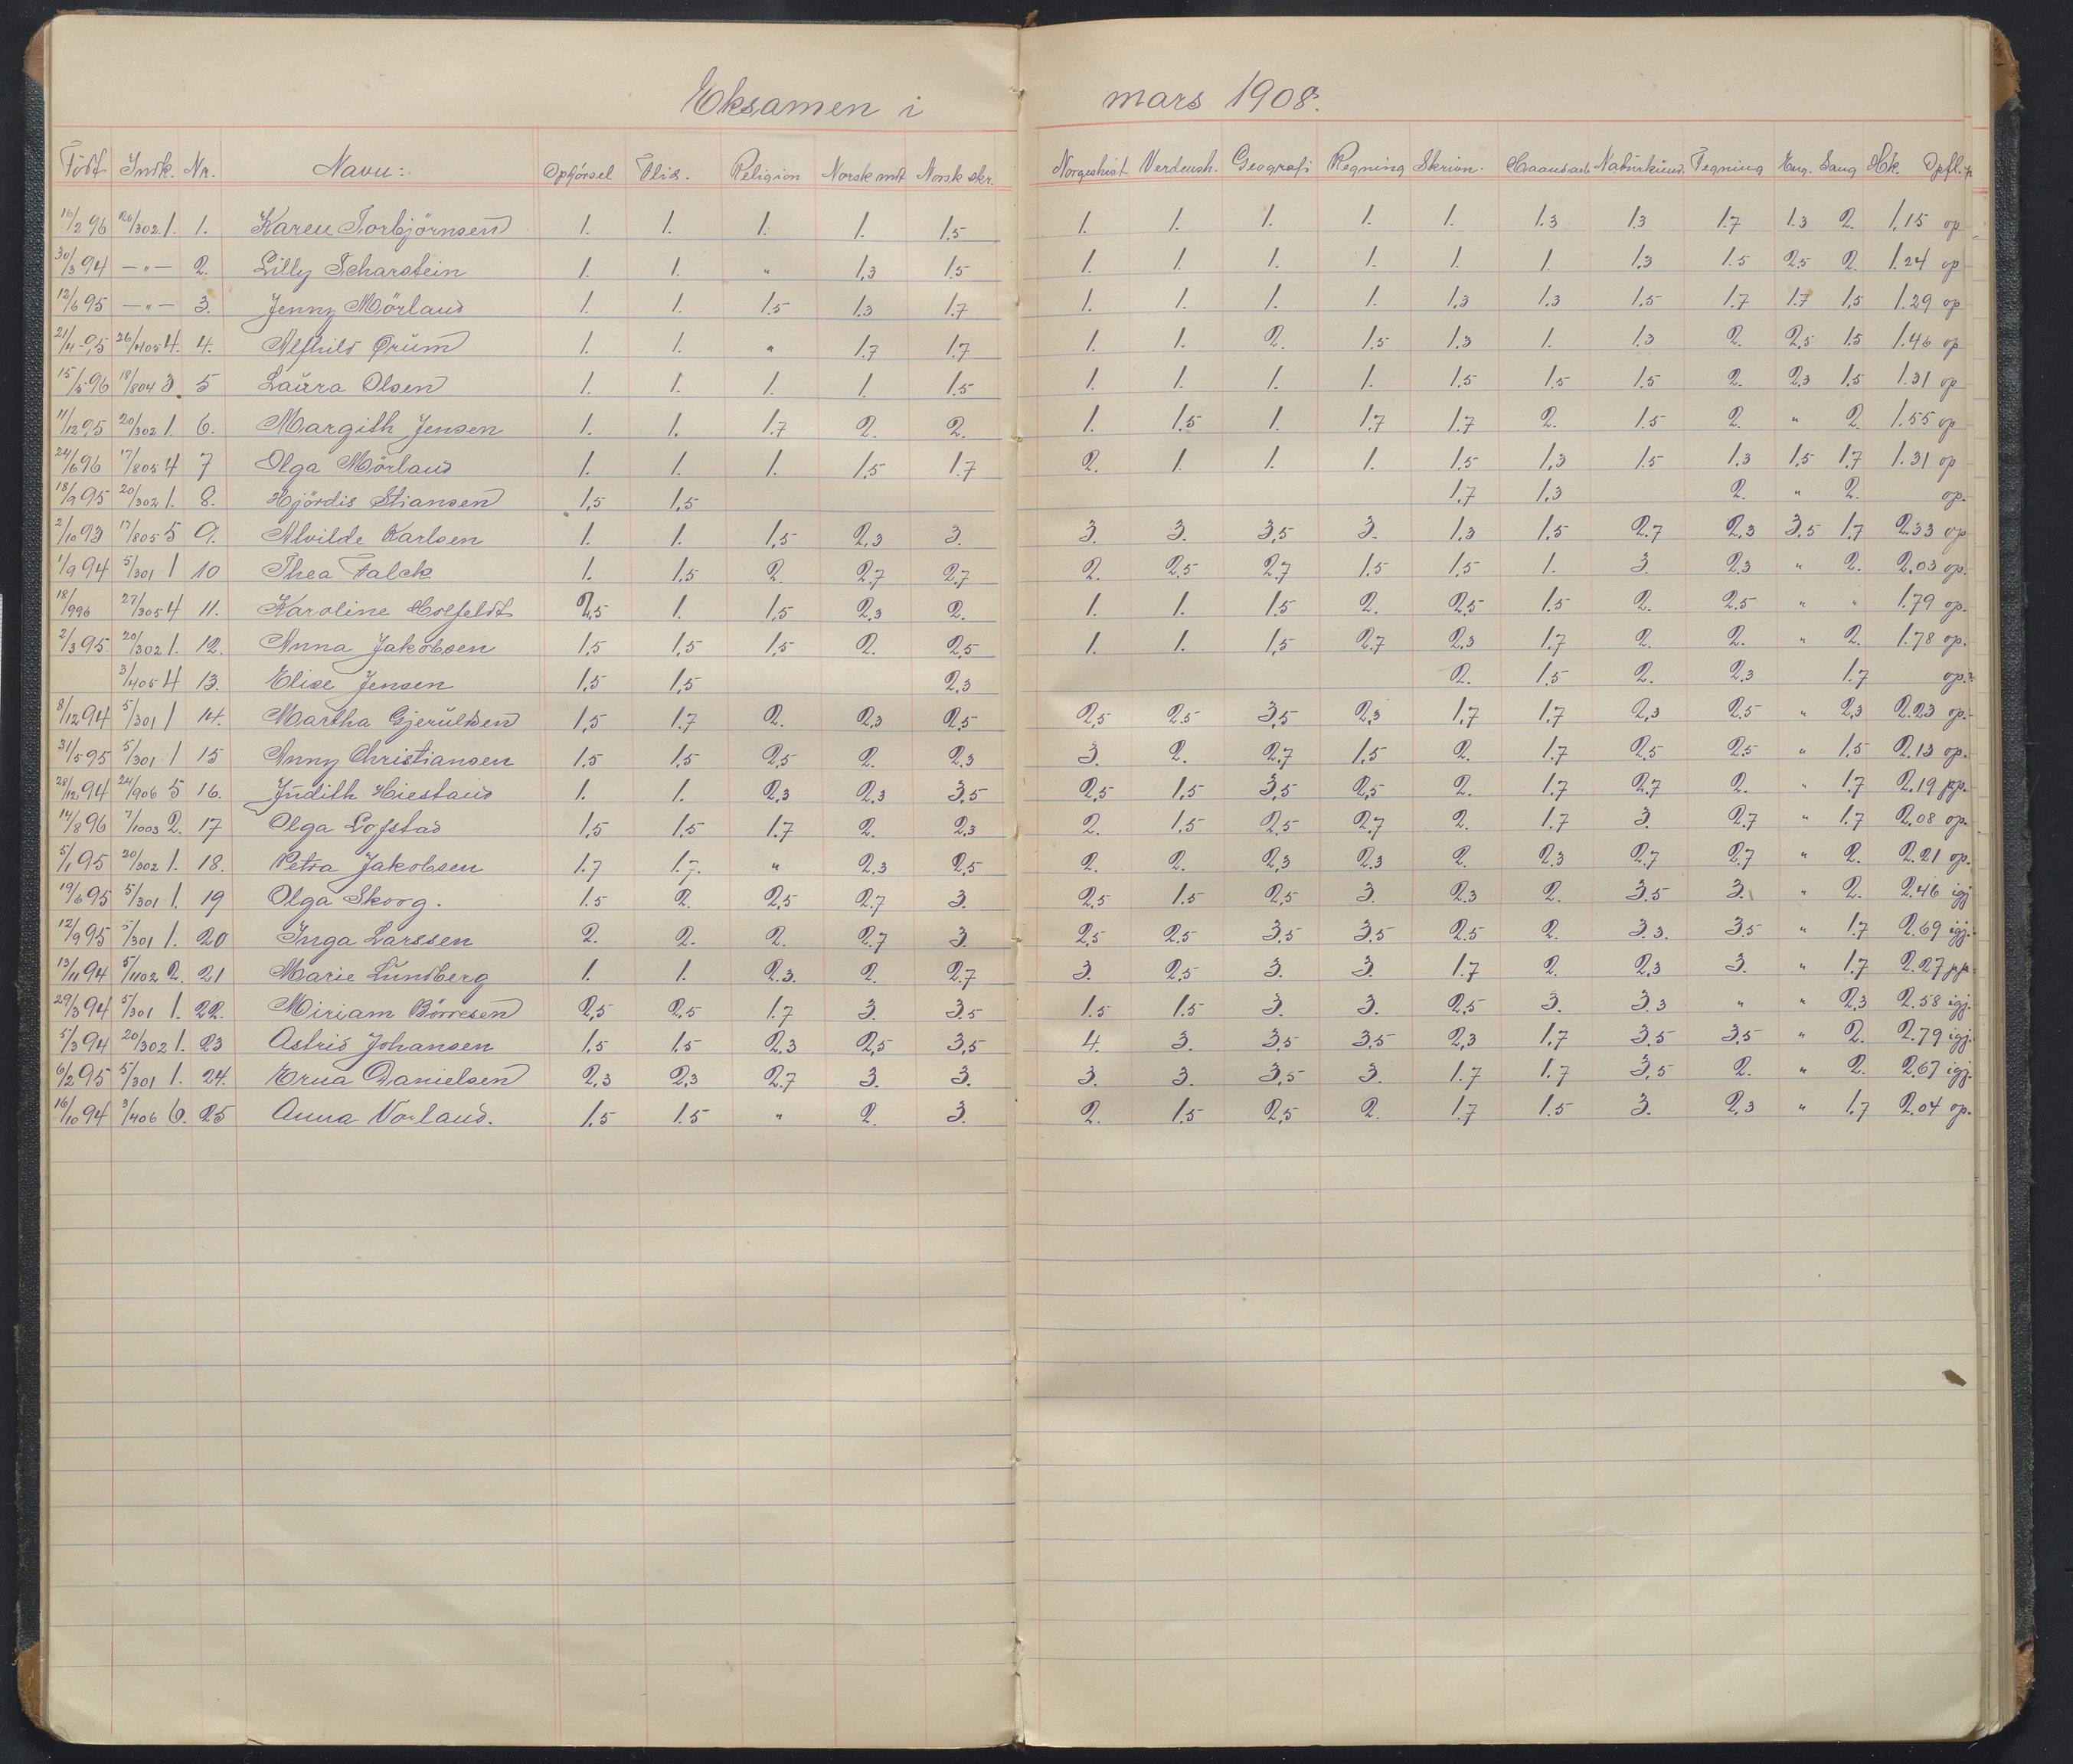 Eksamen i mars 1908.
Född Indk. Nr. Navn: Opførsel Flid. Religion Norsk mdt Norsk skr. Norgeshist. Verdensh. Geografi Regning Skrivn. Haandarb. Naturkund. Tegning Eng. Sang Hk. Opfl.
16/2 96 20/302 1. 1. Karen Torbjörnsen 1. 1. 1. 1. 1.5 1. 1. 1. 1. 1. 1.3 1.3 1.7 1.3 2. 1.15 op
30/3 94 —"— 2. Lilly Scharstein 1. 1. " 1,3 1.5 1. 1. 1. 1. 1. 1. 1.3 1.5 2.5 2. 1.24 op
12/6 95 —"— 3. Jenny Mörland 1. 1. 1.5 1.3 1.7 1. 1. 1. 1. 1.3 1.3 1.5 1.7 1.7 1,5 1.29 op
21/4 95 26/405 4. 4. Alfhild Ørüm 1. 1. " 1.7 1.7 1. 1. 2. 1.5 1.3 1. 1.3 2. 2.5 1.5 1.46 op
15/5 96 18/804 3. 5 Laura Olsen 1. 1. 1. 1. 1.5 1. 1. 1. 1. 1.5 1.5 1.5 2. 2.3 1.5 1.31 op
11/12 95 20/302 1. 6. Margith Jensen 1. 1. 1.7 2. 2. 1. 1.5 1. 1.7 1.7 2. 1.5 2. " 2. 1.55 op
24/6 96 17/805 4 7 Olga Mörland 1. 1. 1. 1,5 1.7 2. 1. 1. 1. 1.5 1,3 1.5 1.3 1,5 1.7 1.31 op
18/9 95 20/302 1. 8. Hjördis Stiansen 1,5 1,5 1,7 1,3 2. " 2. op.
2/10 93 17/805 5 9. Alvilde Karlsen 1. 1. 1,5 2,3 3. 3. 3. 3,5 3. 1.3 1,5 2.7 2,3 3.5 1.7 2.33 op
1/9 94 5/301 1 10 Thea Falck 1. 1,5 2. 2.7 2,7 2. 2,5 2.7 1.5 1.5 1. 3. 2.3 " 2. 2.03 op.
18/9 96 27/305 4 11. Karoline Holfeldt 2,5 1. 1,5 2,3 2. 1. 1. 1.5 2. 2.5 1.5 2. 2.5 " " 1.79 op.
2/3 95 20/302 1. 12. Anna Jakobsen 1,5 1,5 1,5 2. 2,5 1. 1. 1,5 2.7 2.3 1.7 2. 2. " 2. 1.78 op.
3/405 4 13. Elise Jensen 1,5 1,5 2.3 2. 1.5 2. 2.3 1.7 op.
8/12 94 5/301 1 14. Martha Gjerulksen 1,5 1.7 2. 2,3 2,5 2,5 2.5 3,5 2,3 1,7 1.7 2,3 2.5 " 2,3 2.23 op.
31/5 95 5/301 1 15 Anny Christiansen 1.5 1,5 2,5 2. 2.3 3. 2. 2,7 1,5 2. 1.7 2,5 2.5 " 1.5 2.13 op.
28/12 94 24/906 5 16. Judith Hiestand 1. 1. 2.3 2.3 3.5 2,5 1,5 3,5 2,5 2. 1.7 2.7 2. " 1.7 2.19 op.
14/8 96 7/1003 2. 17 Olga Lofstad 1,5 1,5 1.7 2. 2.3 2. 1.5 2.5 2.7 2. 1.7 3. 2.7 " 1.7 2.08 op.
5/1 95 20/302 1. 18. Petra Jakobsen 1.7 1.7. " 2.3 2,5 2. 2. 2,3 2.3 2. 2.3 2.7 2.7 " 2. 2.21 op.
19/6 95 5/301 1. 19 Olga Skoog. 1.5 2. 2,5 2.7 3. 2,5 1.5 2,5 3. 2.3 2. 3.5 3. " 2. 2.46 igj
12/9 95 5/301 1. 20 Inga Larssen 2. 2. 2. 2.7 3. 2,5 2.5 3,5 3.5 2.5 2. 3.3. 3.5 " 1.7 2.69 igj.
13/11 94 5/1102 2. 21 Marie Lundberg 1. 1. 2.3. 2. 2.7 3. 2,5 3. 3. 1.7 2. 2,3 3. " 1.7 2.27
29/3 94 5/301 1. 22. Miriam Börresen 2,5 2,5 1.7 3. 3.5 1.5 1.5 3. 3. 2,5 3. 3.3 " " 2,3 2.58 igj.
5/3 94 20/302 1. 23 Astrid Johansen 1,5 1.5 2.3 2,5 3,5 4. 3. 3,5 3.5 2,3 1.7 3.5 3.5 " 2. 2.79 igj.
6/2 95 5/301 1. 24. Erna Danielsen 2,3 2,3 2.7 3. 3. 3. 3. 3,5 3. 1.7 1.7 3,5 2. " 2. 2.67 igj.
16/10 94 3/406 6. 25 Anna Norland. 1,5 1.5 " 2. 3. 2. 1.5 2,5 2. 1.7 1.5 3. 2.3 " 1.7 2.04 op.